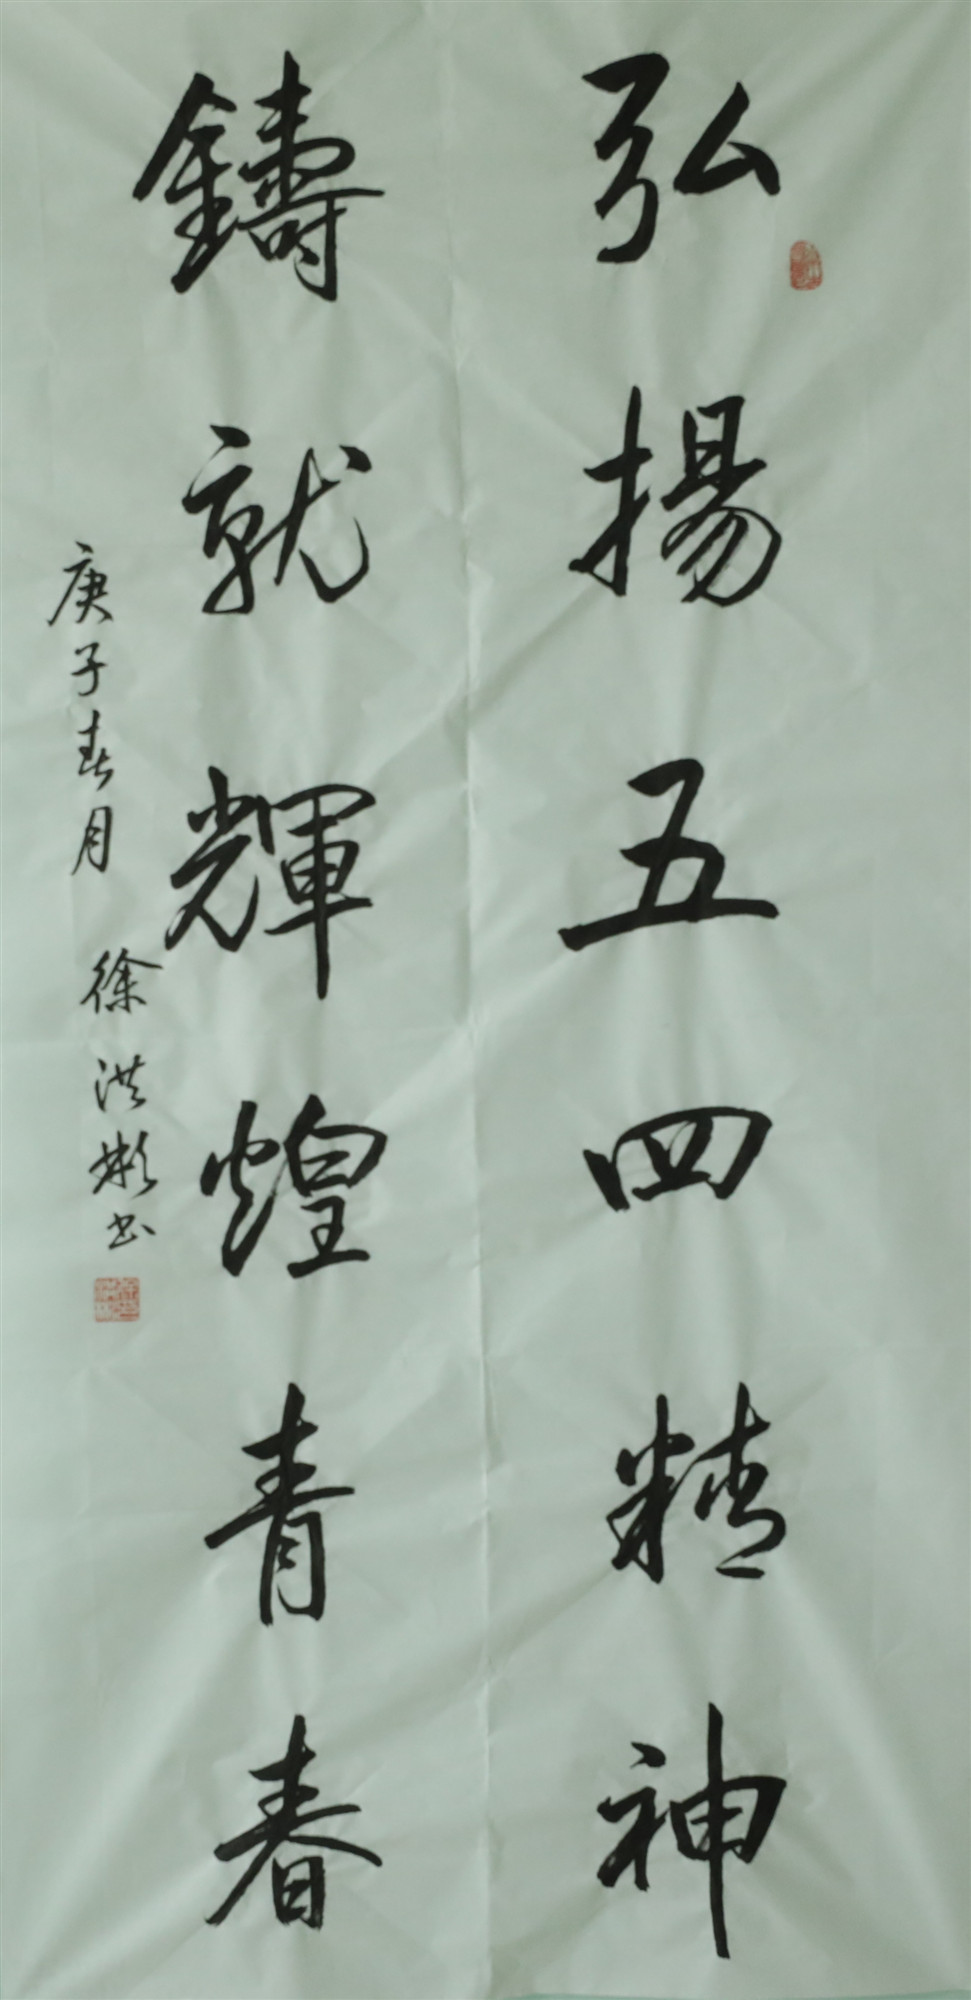 弘揚五四精神
鑄就輝煌青春
庚子春月 徐洪彬書